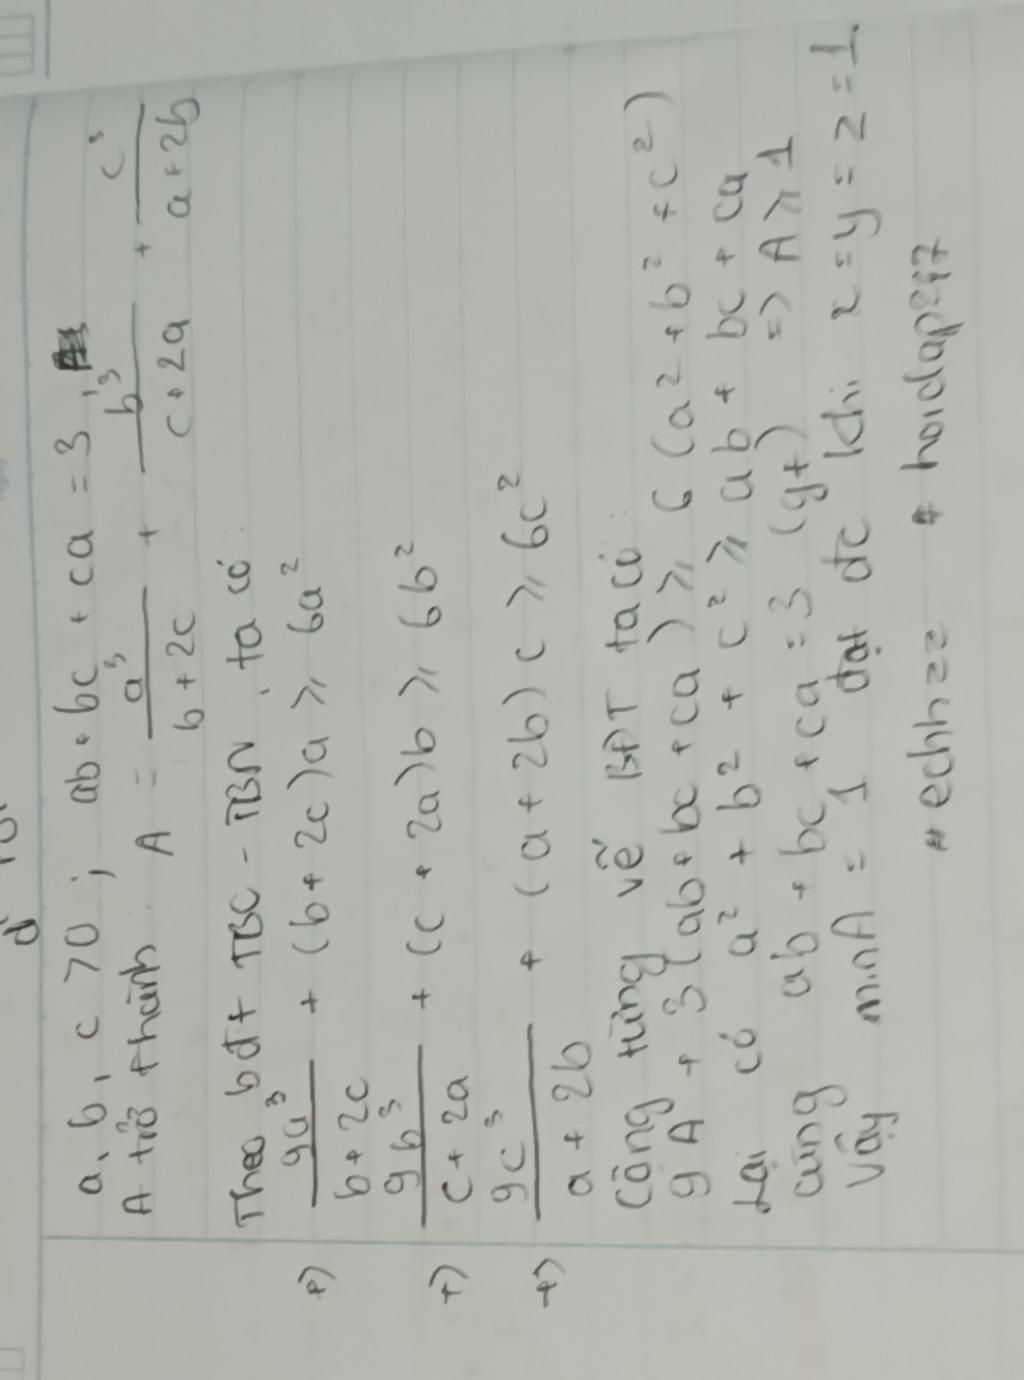 a, b, c > 0 ; ab + bc + ca = 3,
A trở thành A = a³/(b + 2c) + b³/(c + 2a) + c³/(a + 2b)
Theo bđt TBC - TBN, ta có:
+) 9a³/(b + 2c) + (b + 2c)a ⩾ 6a²
+) 9b³/(c + 2a) + (c + 2a)b ⩾ 6b²
+) 9c³/(a + 2b) + (a + 2b)c ⩾ 6c²
Cộng từng vế BĐT ta có:
9A + 3(ab + bc + ca) ⩾ 6(a² + b² + c²)
Lại có a² + b² + c² ⩾ ab + bc + ca
cùng ab + bc + ca = 3 (gt) => A ⩾ 1
Vậy minA = 1 đạt đc khi x = y = z = 1.
# echhzz # hoidap247